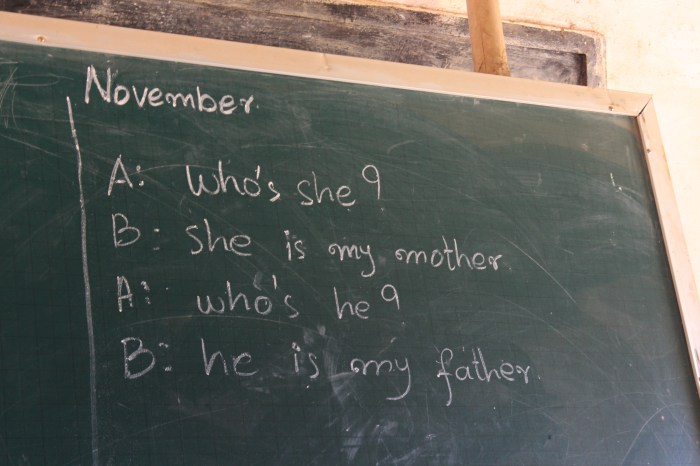 November.
A: Who's she?
B: she is my mother.
A: who's he?
B: he is my father.